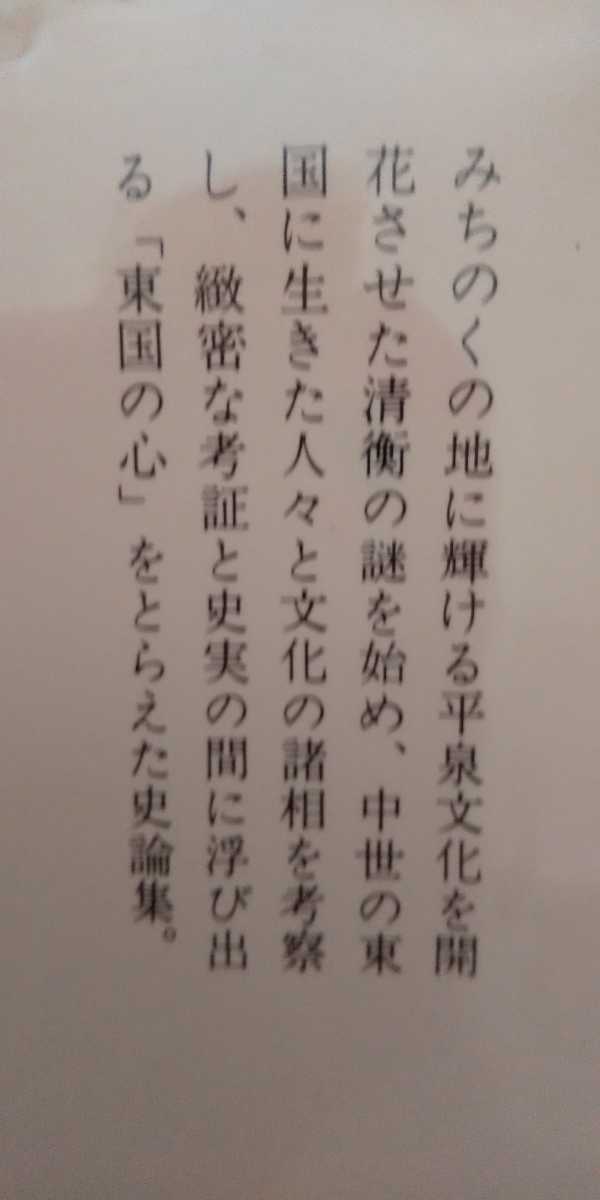 みちのくの地に輝ける平泉文化を開
花させた清衡の謎を始め、中世の東
国に生きた人々と文化の諸相を考察
し、緻密な考証と史実の間に浮び出
る「東国の心」をとらえた史論集。